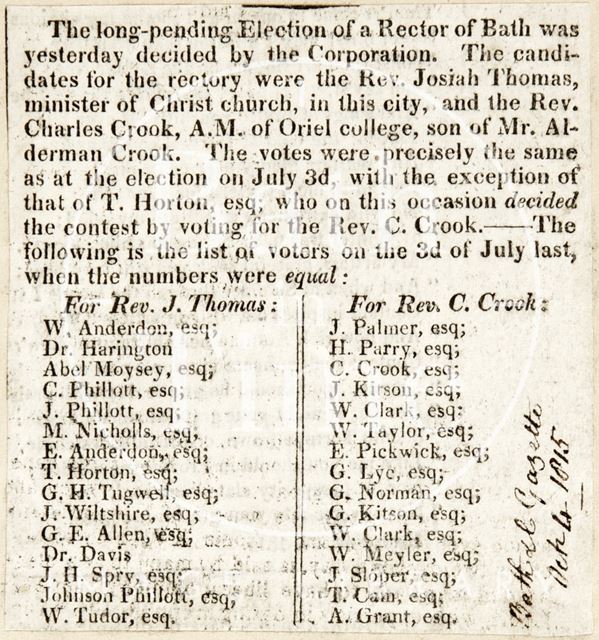 The long-pending Election of a Rector of Bath was
yesterday decided by the Corporation. The candi-
dates for the rectory were the Rev. Josiah Thomas,
minister of Christ church, in this city, and the Rev.
Charles Crook, A.M. of Oriel college, son of Mr. Al-
derman Crook. The votes were precisely the same
as at the election on July 3d, with the exception of
that of T. Horton, esq; who on this occasion decided
the contest by voting for the Rev. C. Crook.——The
following is the list of voters on the 3d of July last,
when the numbers were equal:
For Rev. J. Thomas:
W. Anderdon, esq;
Dr. Harington
Abel Moysey, esq;
C. Phillott, esq;
J. Phillott, esq;
M. Nicholls, esq;
E. Anderdon, esq;
T. Horton, esq;
G. H. Tugwell, esq;
J. Wiltshire, esq;
G. E. Allen, esq;
Dr. Davis
J. H. Spry, esq;
Johnson Phillott, esq;
W. Tudor, esq.
For Rev. C. Crook:
J. Palmer, esq;
H. Parry, esq;
C. Crook, esq;
J. Kirson, esq;
W. Clark, esq;
W. Taylor, esq;
E. Pickwick, esq;
G. Lye, esq;
G. Norman, esq;
G. Kitson, esq;
W. Clark, esq;
W. Meyler, esq;
J. Sloper, esq;
T. Cam, esq;
A. Grant, esq.
Bath & C Gazette
Oct 4 1815